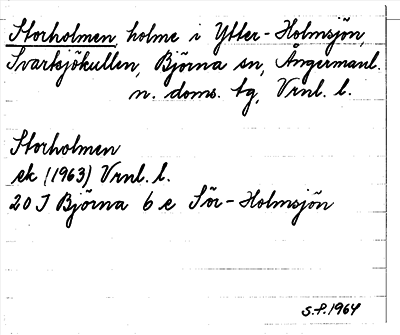 Storholmen, holme i Ytter-Holmsjön,
Svartsjökullen, Björna sn, Ångermanl.
n. doms. tg, Vrnl. l.
Storholmen
ek (1963) Vrnl. l.
20 J Björna 6 e Sör-Holmsjön
S.F. 1964